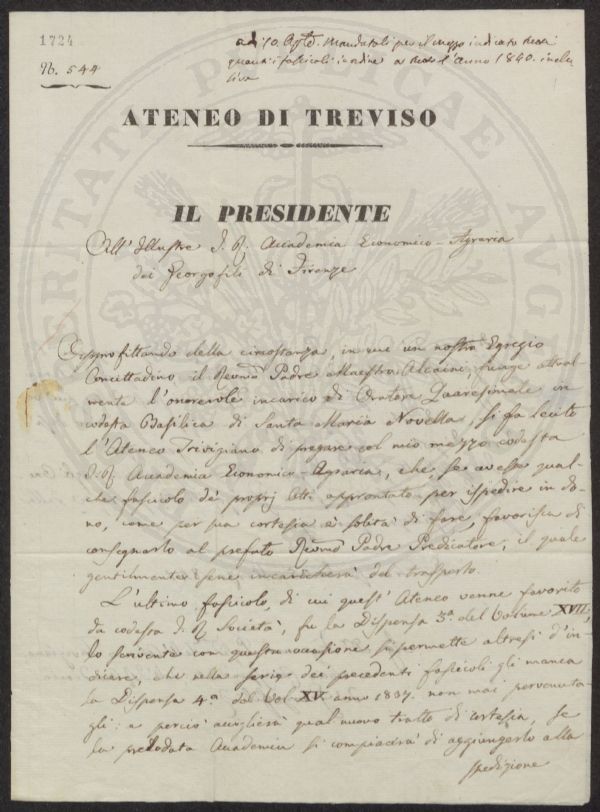 1724
N. 544
adì 10 Aple. Mandatoli per il mezzo indicato
quanti fascicoli in ordine a tutto l'anno 1840. inclu
sive
ATENEO DI TREVISO
IL PRESIDENTE
All' Illustre I. R. Accademia Economico-Agraria
dei Georgofili di Firenze
Approfittando della circostanza, in cui un nostro Egregio
Concittadino il Revmd Padre Maestro Alcaini funge attual
mente l'onorevole incarico di Oratore Quaresimale in
codesta Basilica di Santa Maria Novella, si fa lecito
l'Ateneo Trivigiano di pregare col mio mezzo codesta
I. R. Accademia Economico-Agraria, che, se avesse qual-
che fascicolo de' proprj Atti approntato per ispedire in do-
no, come per sua cortesia è solita di fare, favorisca di
consegnarlo al prefato Revmd Padre Predicatore, il quale
gentilmente se ne incaricherà del trasporto.
L'ultimo fascicolo, di cui quest' Ateneo venne favorito
da codesta I. R. Società, fu la Dispensa 3a del Volume XVII;
lo scrivente con questa occasione si permette altresì d'in-
dicare, che nella serie dei precedenti fascicoli gli manca
la Dispensa 4a del Vol. XV. anno 1837. non mai pervenuta-
gli: e perciò accoglierà qual nuovo tratto di cortesia, se
la prelodata Accademia si compiacerà di aggiungerlo alla
spedizione